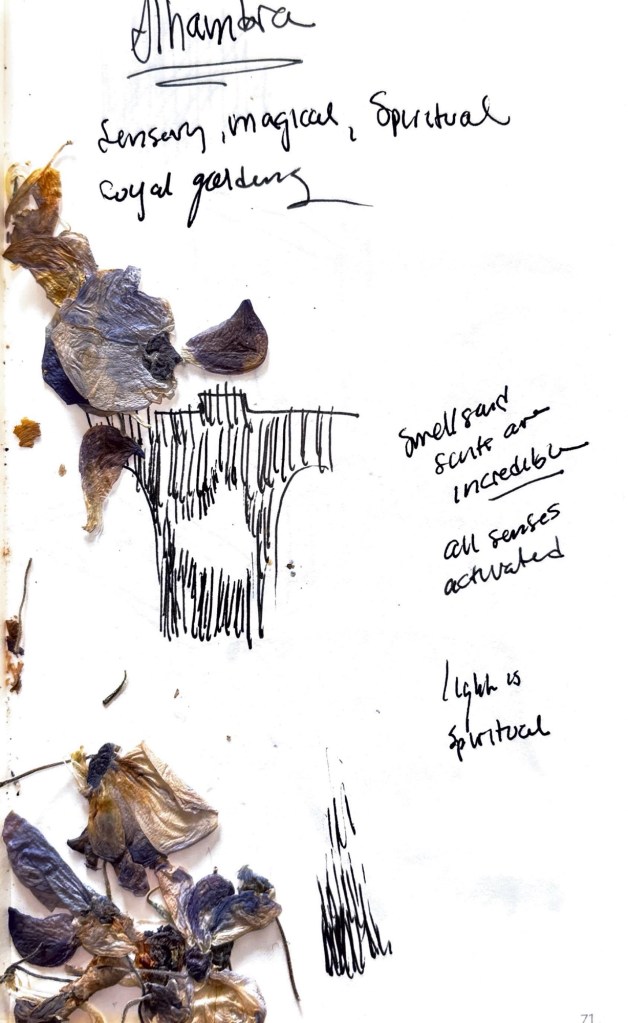 Alhambra
Sensory, magical, Spiritual
royal gardens
Smells and
scents are
incredible
all senses
activated
light is
Spiritual
71